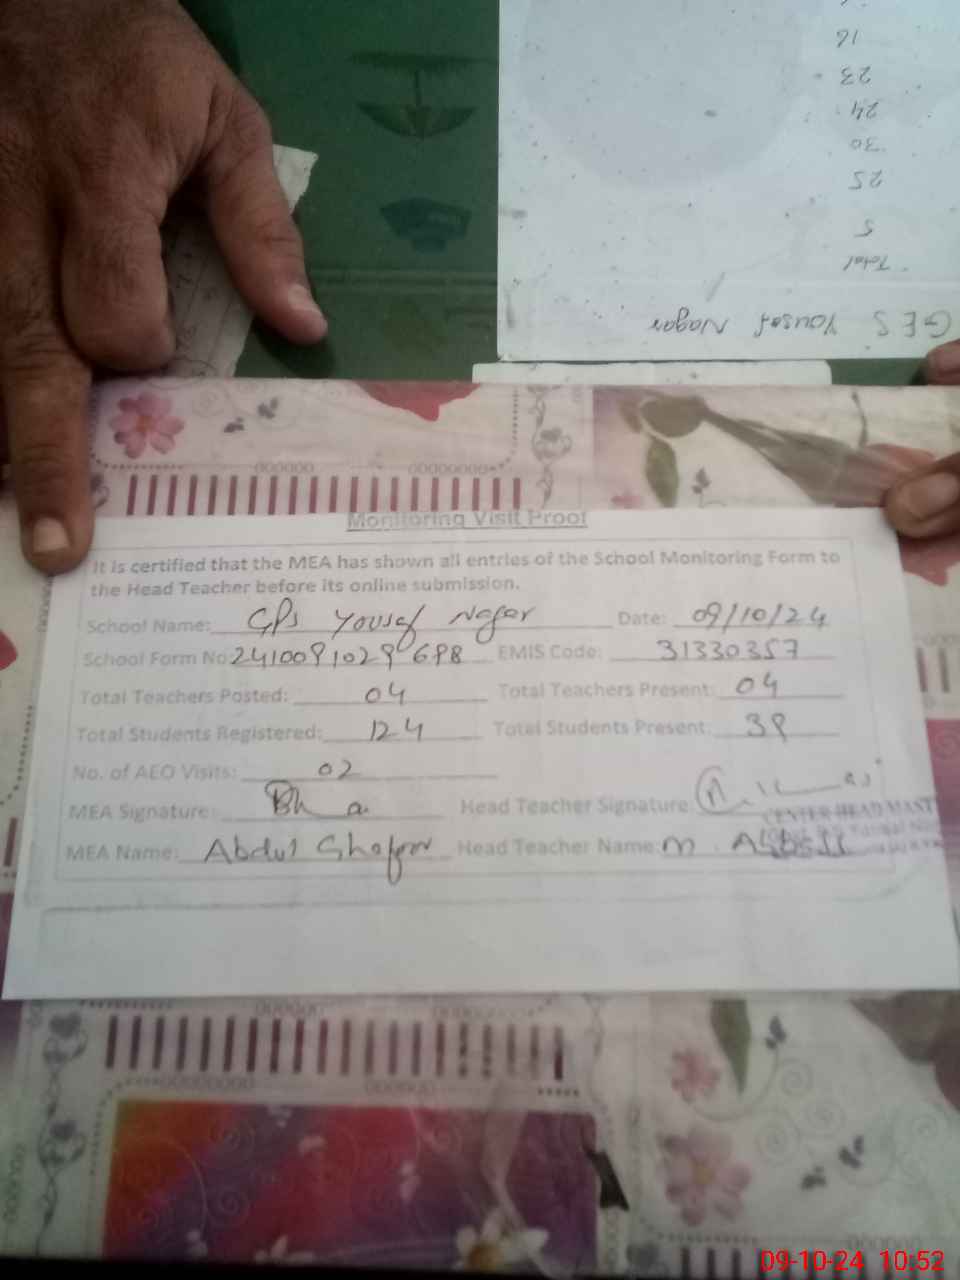 16
23
24
30
25
5
Total
GES Yousaf Nagar
Monitoring Visit Proof
It is certified that the MEA has shown all entries of the School Monitoring Form to
the Head Teacher before its online submission.
School Name: GPS Yousaf Nagar Date: 09/10/24
School Form No: EMIS Code: 31330357
Total Teachers Posted: 04 Total Teachers Present: 04
Total Students Registered: 124 Total Students Present: 39
No. of AEO Visits: 02
MEA Signature: Head Teacher Signature:
CENTER HEAD MAST
MEA Name: Abdul Ghafoor Head Teacher Name: M.
09-10-24 10:52